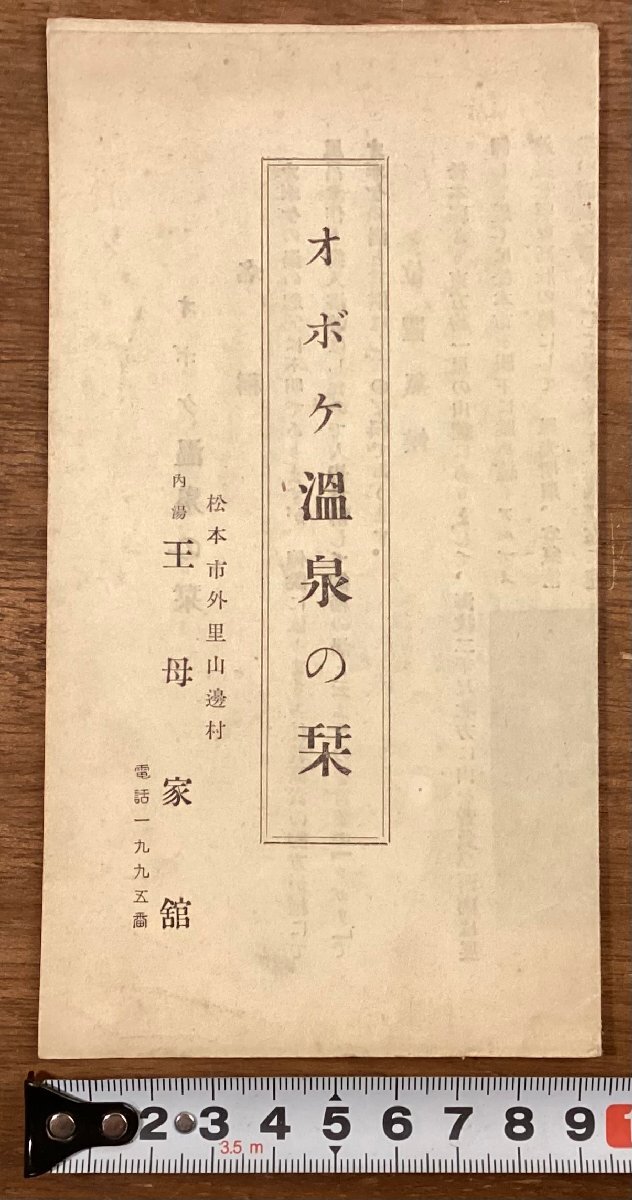 オボケ溫泉の栞
松本市外里山邊村
內湯 王母家舘
電話一九九五番
2 3 4 5 6 7 8 9 1
3.5 m